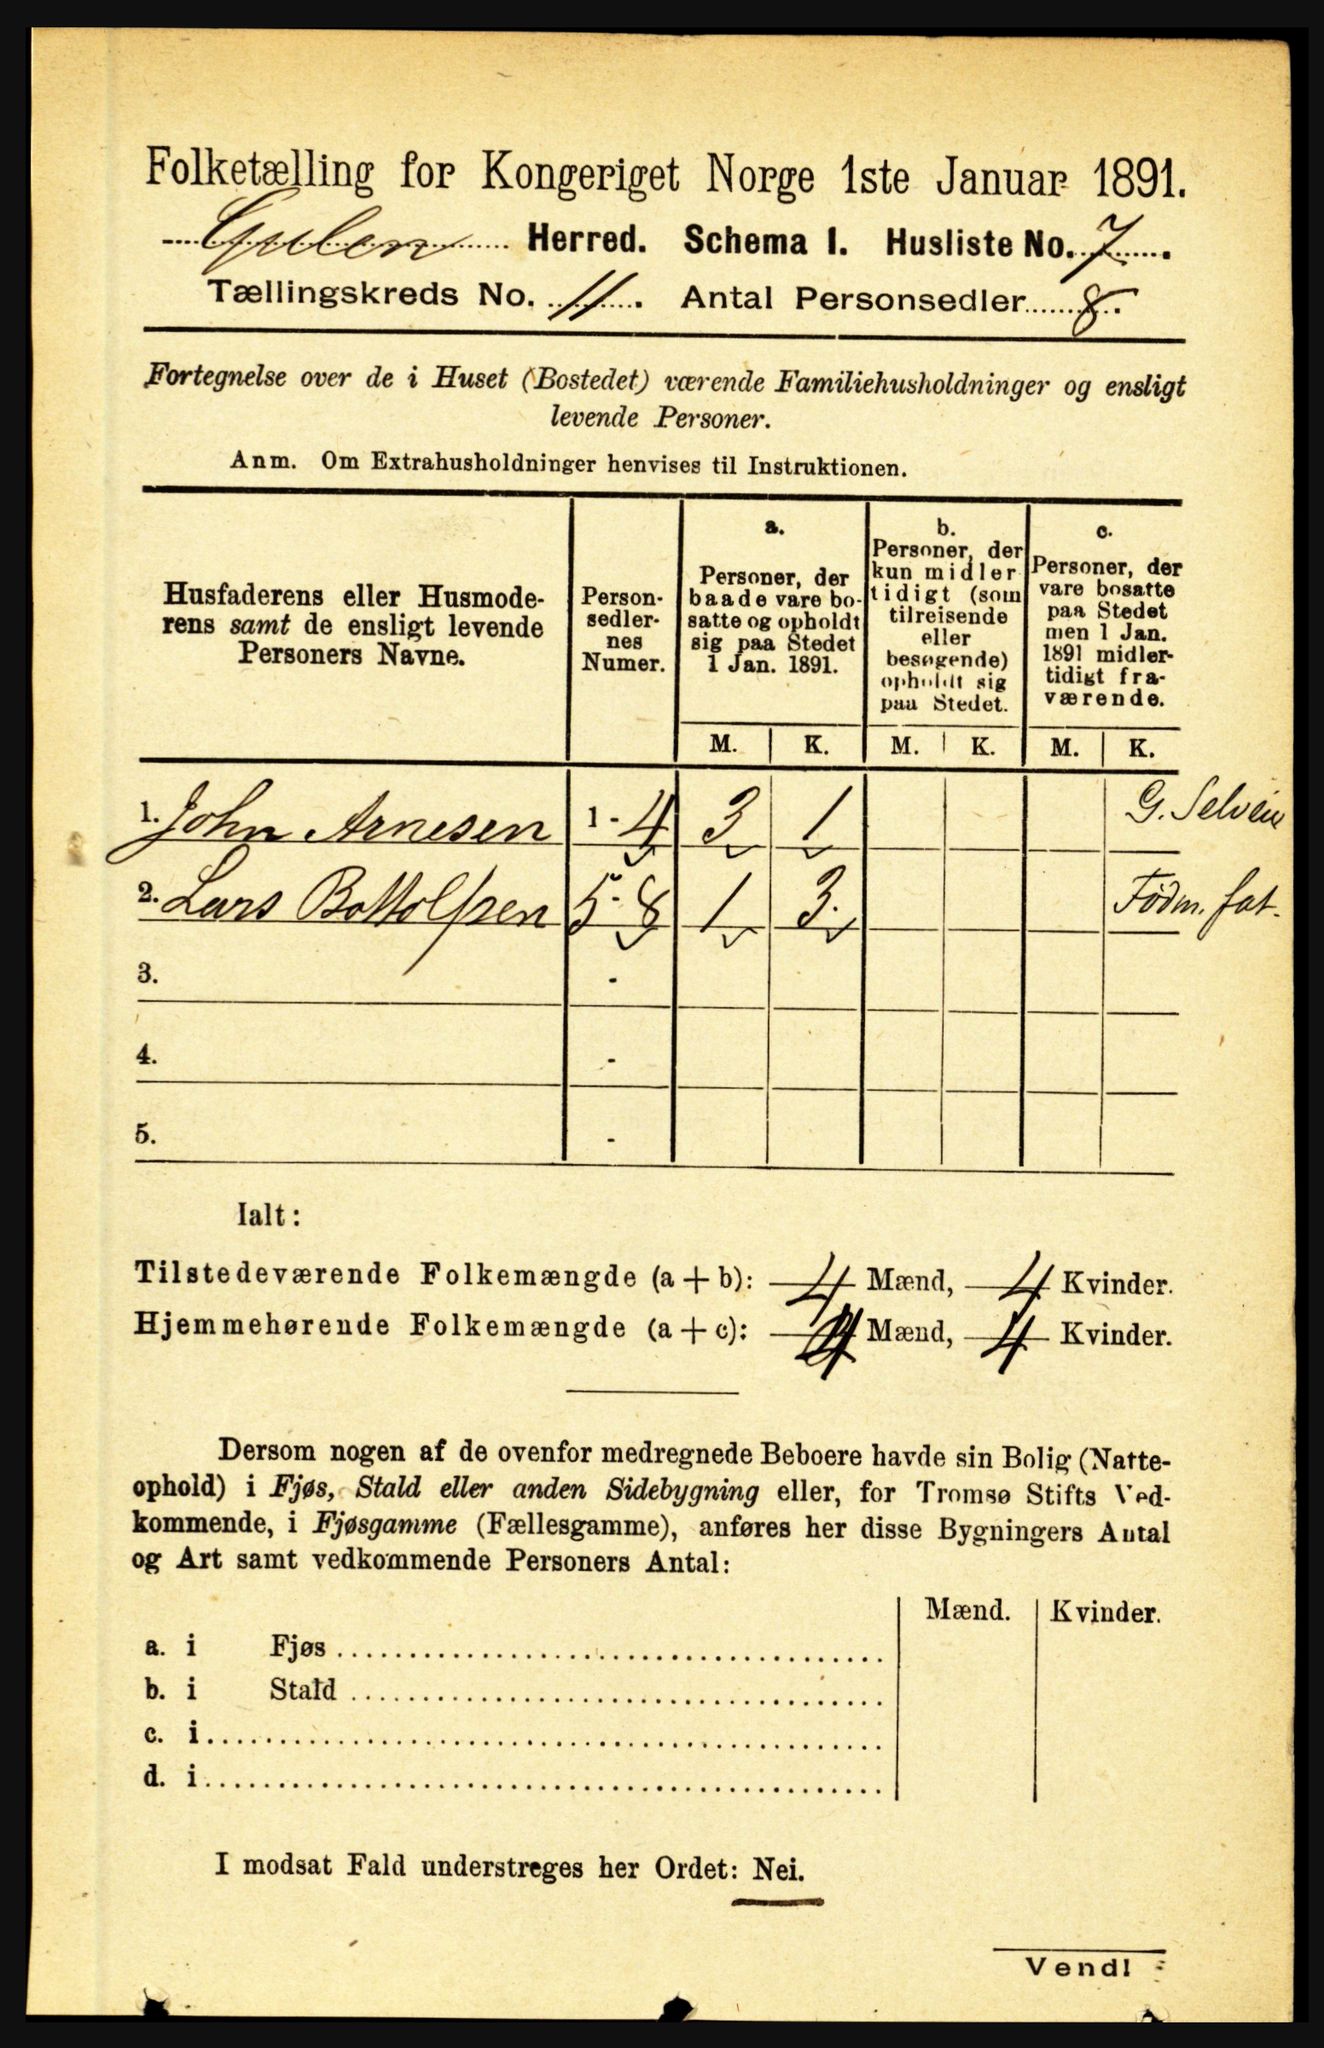 Folketælling for Kongeriget Norge 1ste Januar 1891.
Gulen Herred. Schema I. Husliste No. 7.
Tællingskreds No. 11. Antal Personsedler 8.
Fortegnelse over de i Huset (Bostedet) værende Familiehusholdninger og ensligt
levende Personer.
Anm. Om Extrahusholdninger henvises til Instruktionen.
Husfaderens eller Husmode-
rens samt de ensligt levende
Personers Navne.
Person-
sedler-
nes
Numer.
a.
Personer, der
baade vare bo-
satte og opholdt
sig paa Stedet
1 Jan. 1891.
b.
Personer, der
kun midler
tidigt (som
tilreisende
eller
besøgende)
opholdt sig
paa Stedet.
c.
Personer, der
vare bosatte
paa Stedet
men 1 Jan.
1891 midler-
tidigt fra-
værende.
M. K. M. K. M. K.
1. John Arnesen 1 - 4 3 1 G. Selveie
2. Lars Bottolfsen 5 - 8 1 3. Fødm. fat.
3. -
4. -
5. -
Ialt:
Tilstedeværende Folkemængde (a + b): 4 Mænd, 4 Kvinder.
Hjemmehørende Folkemængde (a + c): 4 Mænd, 4 Kvinder.
Dersom nogen af de ovenfor medregnede Beboere havde sin Bolig (Natte-
ophold) i Fjøs, Stald eller anden Sidebygning eller, for Tromsø Stifts Ved-
kommende, i Fjøsgamme (Fællesgamme), anføres her disse Bygningers Antal
og Art samt vedkommende Personers Antal:
Mænd. Kvinder.
a. i Fjøs
b. i Stald
c. i
d. i
I modsat Fald understreges her Ordet: Nei.
Vend!